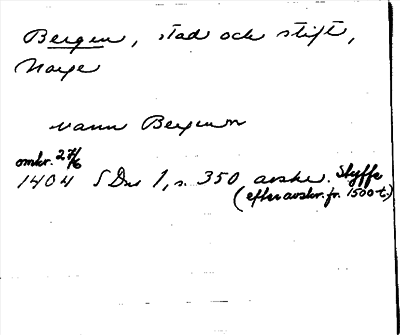 Bergen, stad och stift,
Norge
vann Bergum
omkr. 27/6
1404 SDns 1, s. 350 avskr. Styffe
(efter avskr. fr. 1500-t.)